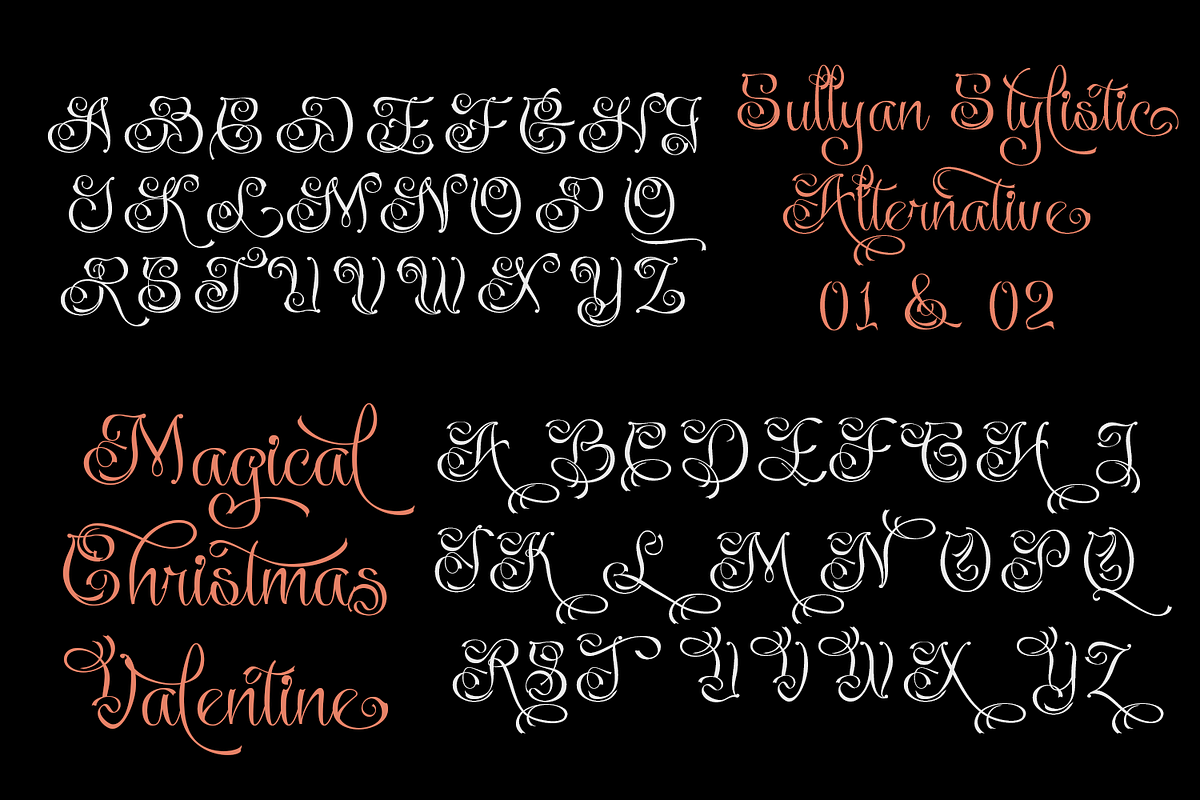 A B C D E F G H I
J K L M N O P Q
R S T U V W X Y Z
Sullyan Stylistic
Alternative
01 & 02
Magical
Christmas
Valentine
A B C D E F G H I
J K L M N O P Q
R S T U V W X Y Z